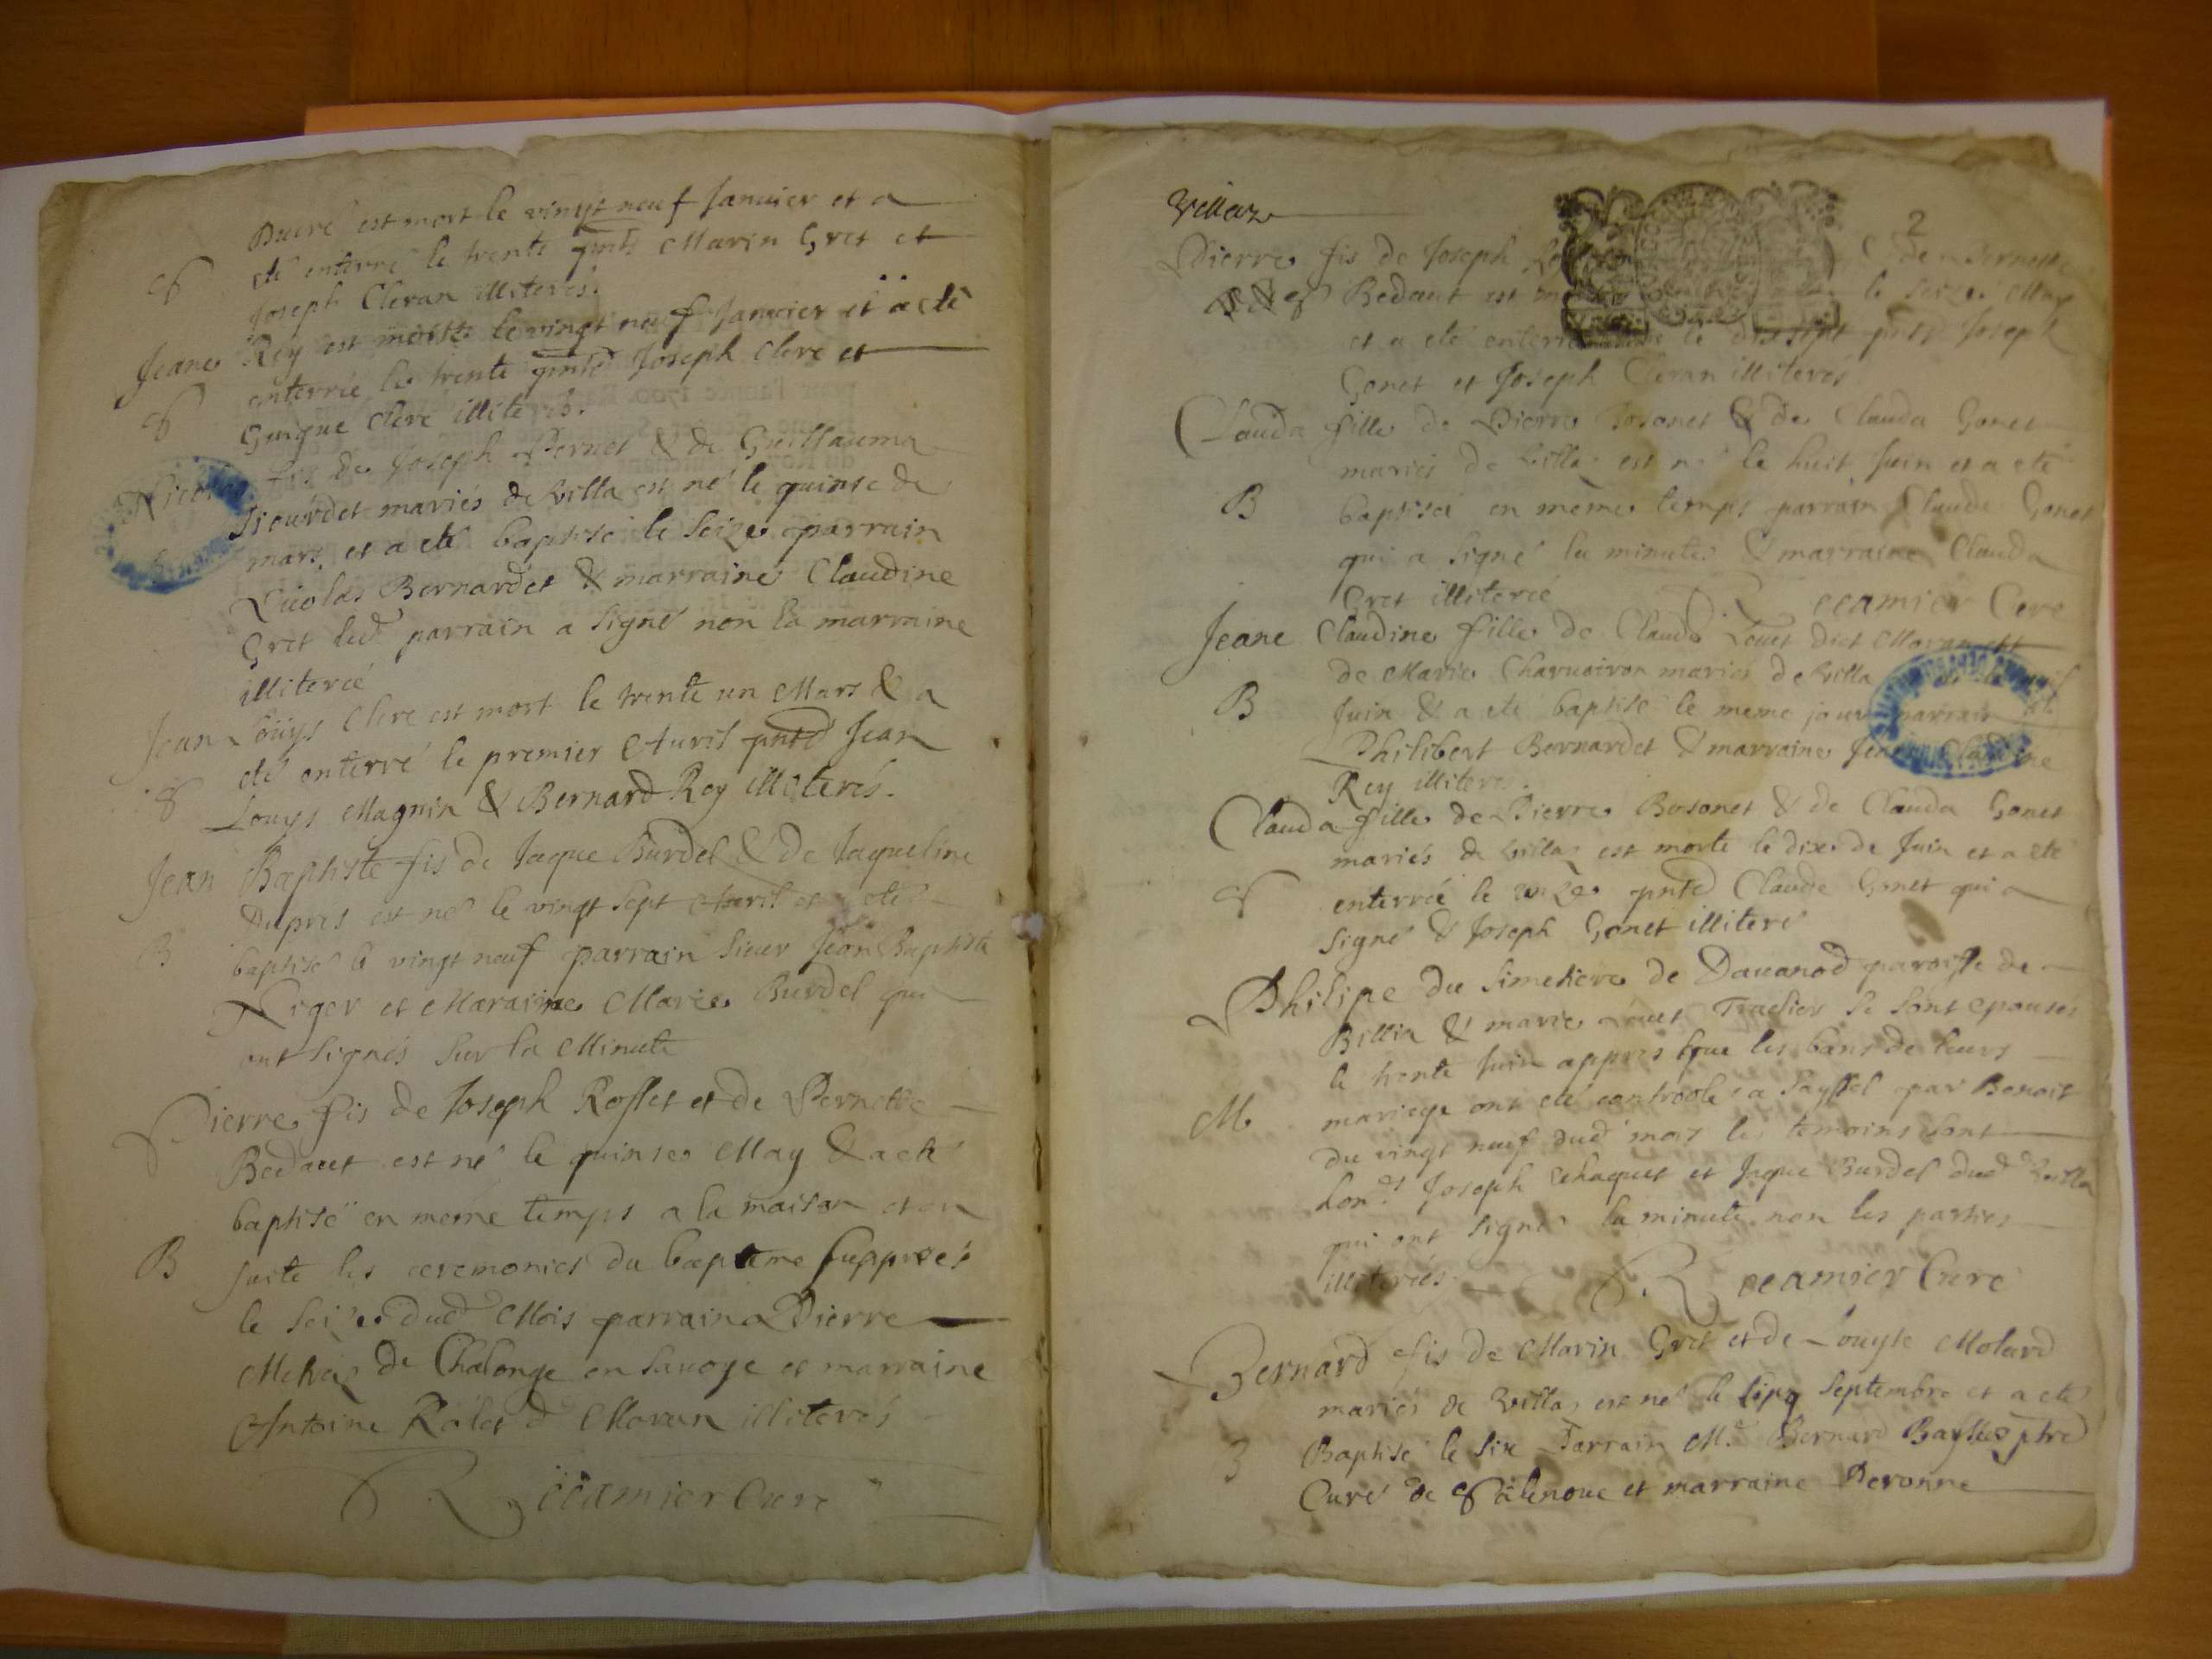 est mort le vingt neuf Januier et a
S eté enterré le trente pnts Marin Gret et
Joseph Cleran illiterés.
Jeane Rey est morte le vingt neuf Januier et a eté
enterrée le trente pntd Joseph Clerc et
S Guigue Clerc illiterés.
fis de Joseph Pernet & de Guillauma
mariés de Villa est né le quinse de
mars, et a eté baptisé le seize parrain
Nicolas Bernardet & marraine Claudine
Gret led parrain a signé non la marraine
illiterée
Jean Louys Clerc est mort le trente un Mars & a
eté enterré le premier Auril pntd Jean
S Louys Magnin & Bernard Rey illiterés.
Jean Baptiste fis de Jaque Burdel & de Jaqueline
Dupres est né le vingt sept Auril et a eté
B baptisé le vingt neuf parrain sieur Jean Baptiste
Niger et Maraine Marie Burdel qui
ont signés sur la Minute
Pierre fis de Joseph Rosset et de Pernette
Bedaut est né le quinse May & a eté
baptisé en méme temps a la maison et en
B suite les ceremonies du bapteme
le seize dud Mois parrain Pierre
de Chalonge en sauoye et marraine
Antoine d Moran illiterés
Recamier Curé
Villaz
2
Pierre fis de Joseph de Pernette
S Bedaut est le seize May
et a eté enterré le dix sept pnts Joseph
Gonet et Joseph Cleran illiterés
Clauda fille de Pierre Bosonet & de Clauda Gonet
mariés de Villa est né le huit Juin et a eté
B baptisé en méme temps parrain Claude Gonet
qui a signé la minute & marraine Clauda
Gret illiterée Recamier Curé
Jeane Claudine fille de Claude Louet dict Moran et
de Marie mariés de Villa
B Juin & a eté baptisé le meme jour parrain
Philibert Bernardet & marraine Jeane Claudine
Rey illiteres.
Clauda fille de Pierre Bosonet & de Clauda Gonet
mariés de Villa est morte le dix de Juin et a eté
S enterrée le onze pntd Claude Gonet qui a
signé & Joseph Gonet illiteré
Philipe du Simetiere de Dauanod paroisse de
Billia & marie se sont epousés
le trente Juin appres que les bans de leurs
M mariege ont eté controolés a Seyssel par Benoit
du vingt neuf dud mois les temoins sont
hon. Joseph et Jaque Burdel dud Villa
qui ont signé la minute non les parties
illiterées Recamier Curé
Bernard fis de Marin Gret et de Louyse Molard
mariés de Villa est né le Septembre et a eté
B Baptisé le six Parrain M. Bernard ptre
Curé de et marraine Peronne